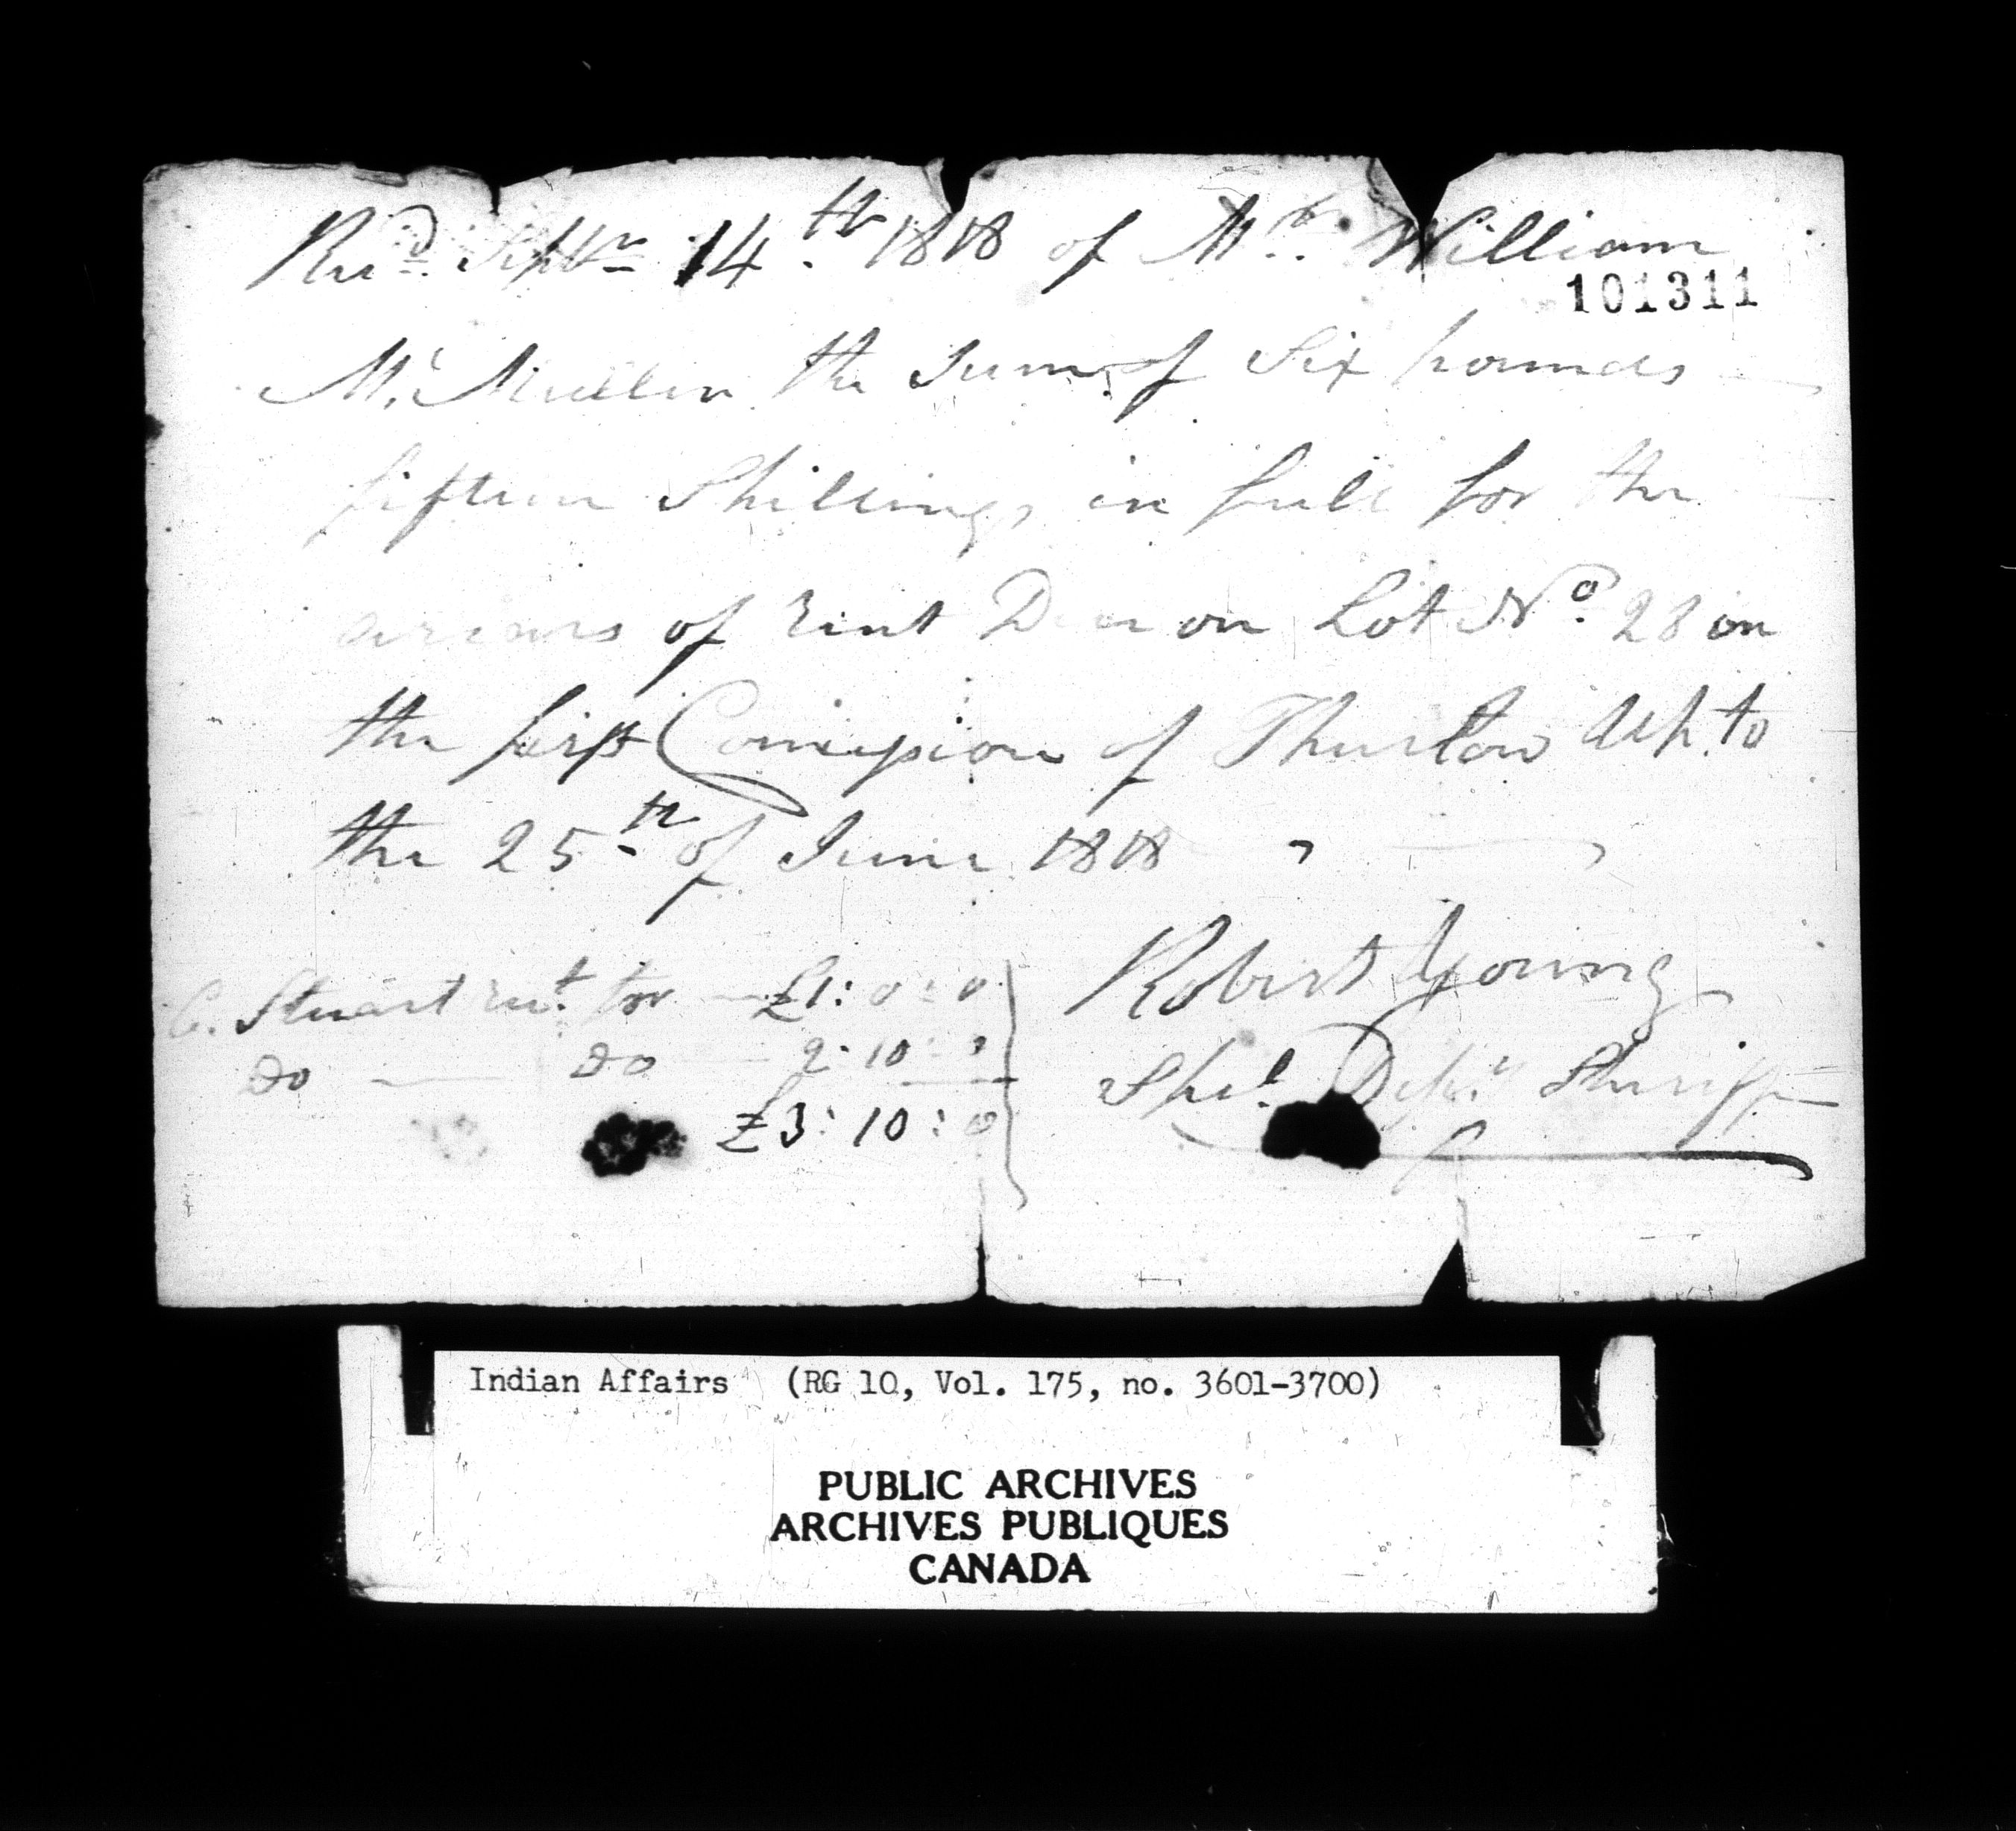 Recd Septr 14th 1818 of Mr. William
101311
McMullen the Sum of Six pounds
fifteen Shillings in full for the
arrears of rent Due on Lot No. 28 on
the first Concession of Thurlow up to
the 25th of June 1818
C. Stuart rect for £1: 0: 0
Do Do 2: 10: 0
£3: 10: 0
Robert Young
Depy Sheriff
Indian Affairs (RG 10, Vol. 175, no. 3601-3700)
PUBLIC ARCHIVES
ARCHIVES PUBLIQUES
CANADA